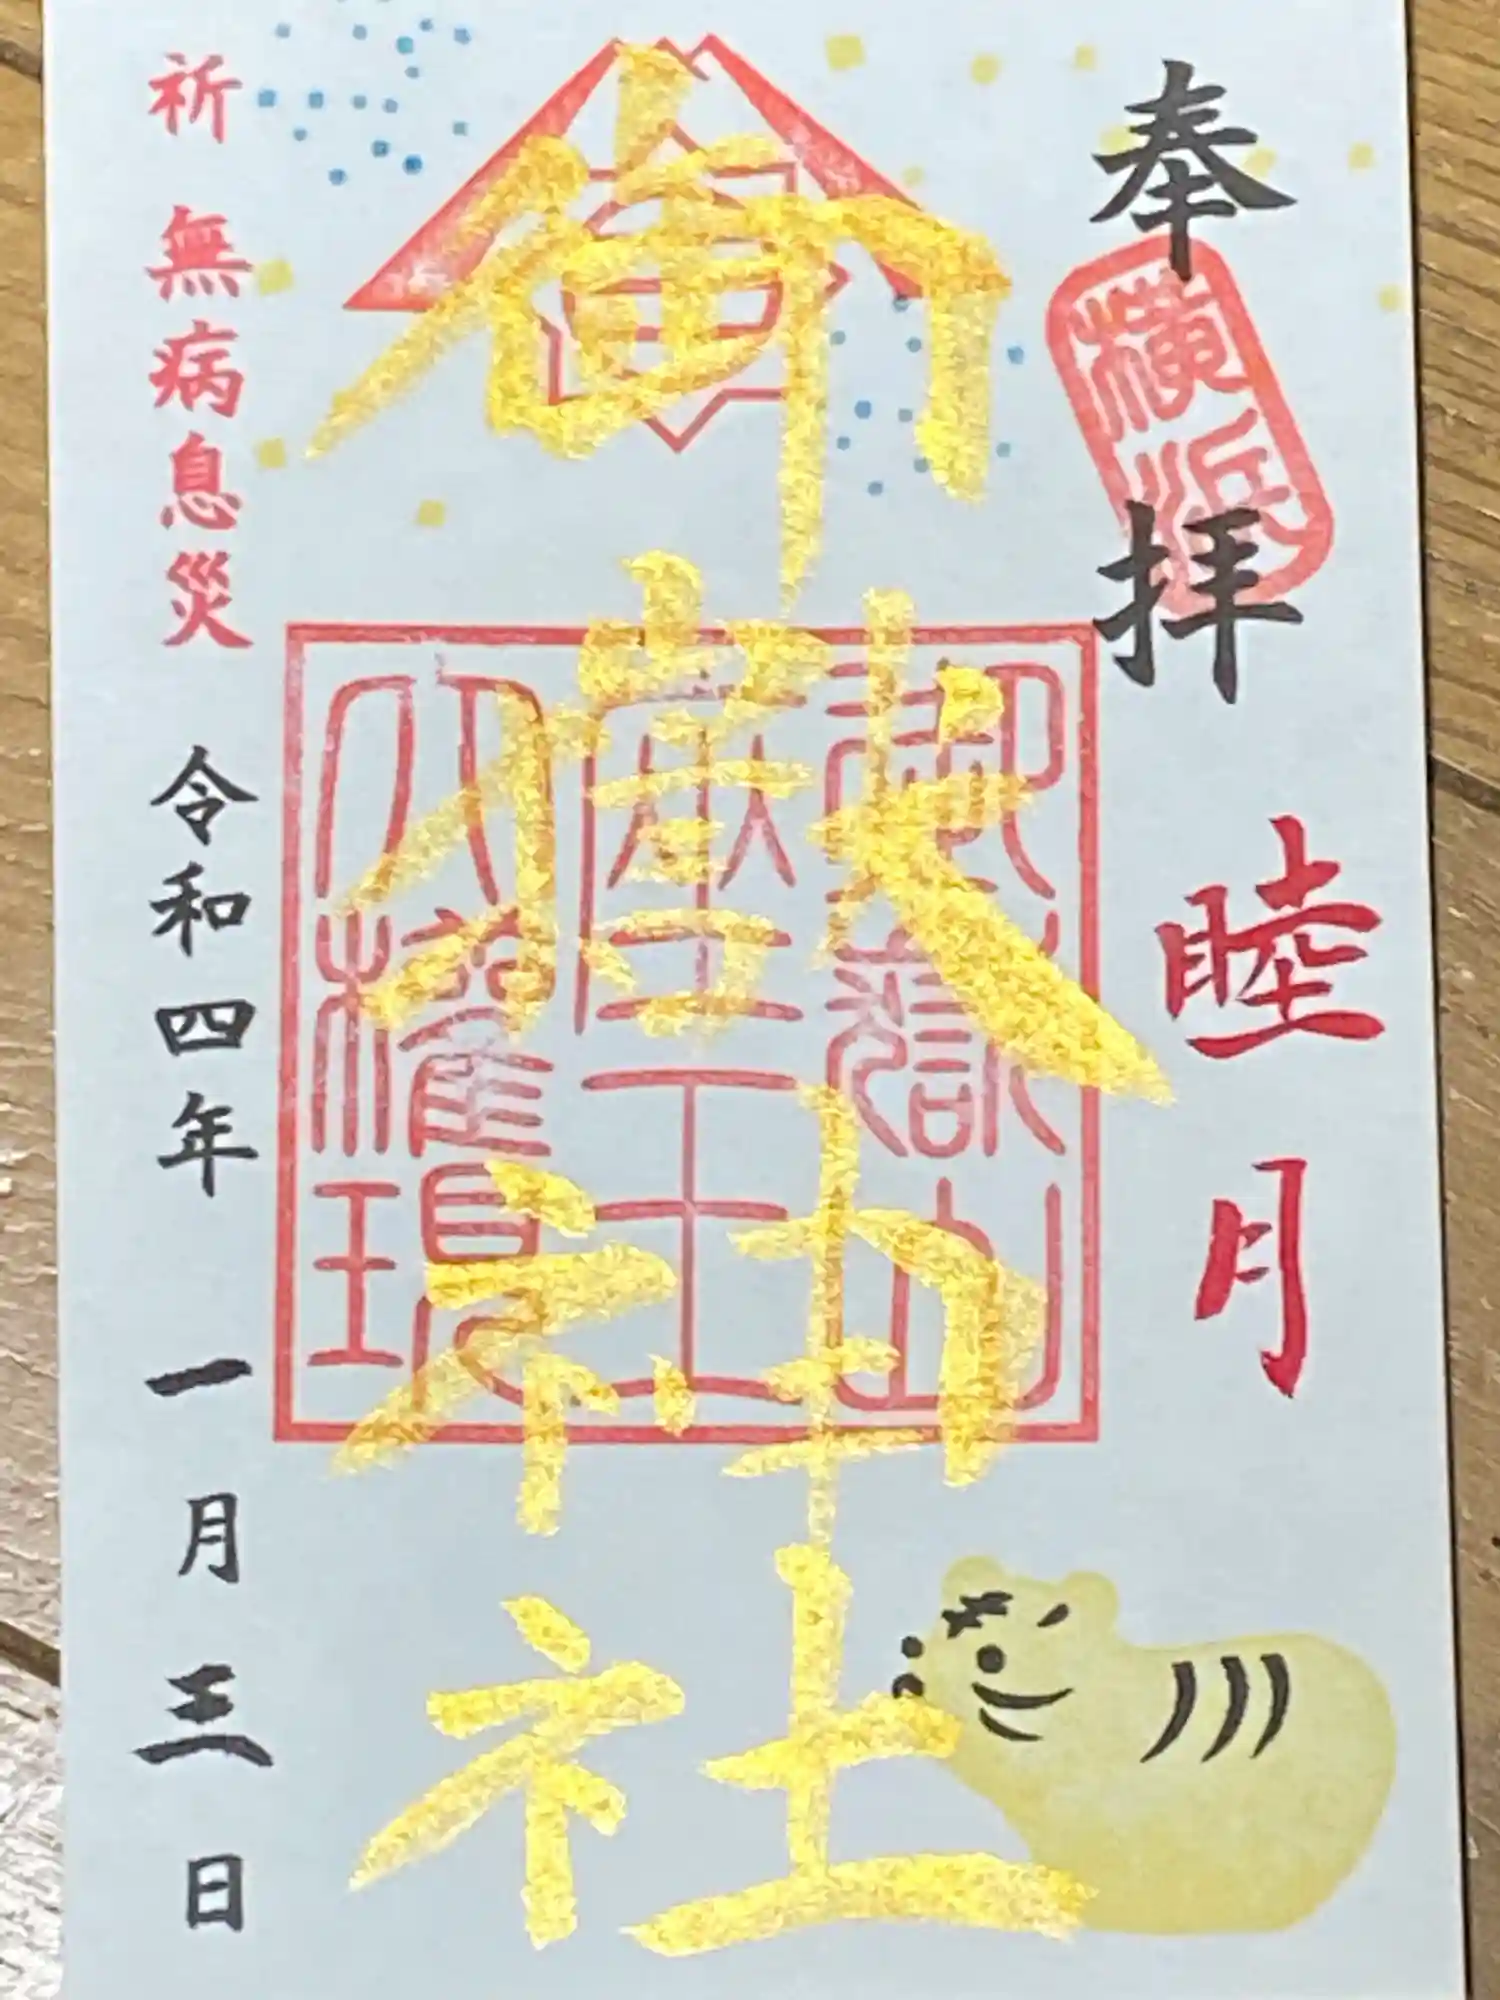 奉拝
横浜
睦月
御嶽神社
御嶽山
座王
大権現
祈 無病息災
令和四年 一月 三日